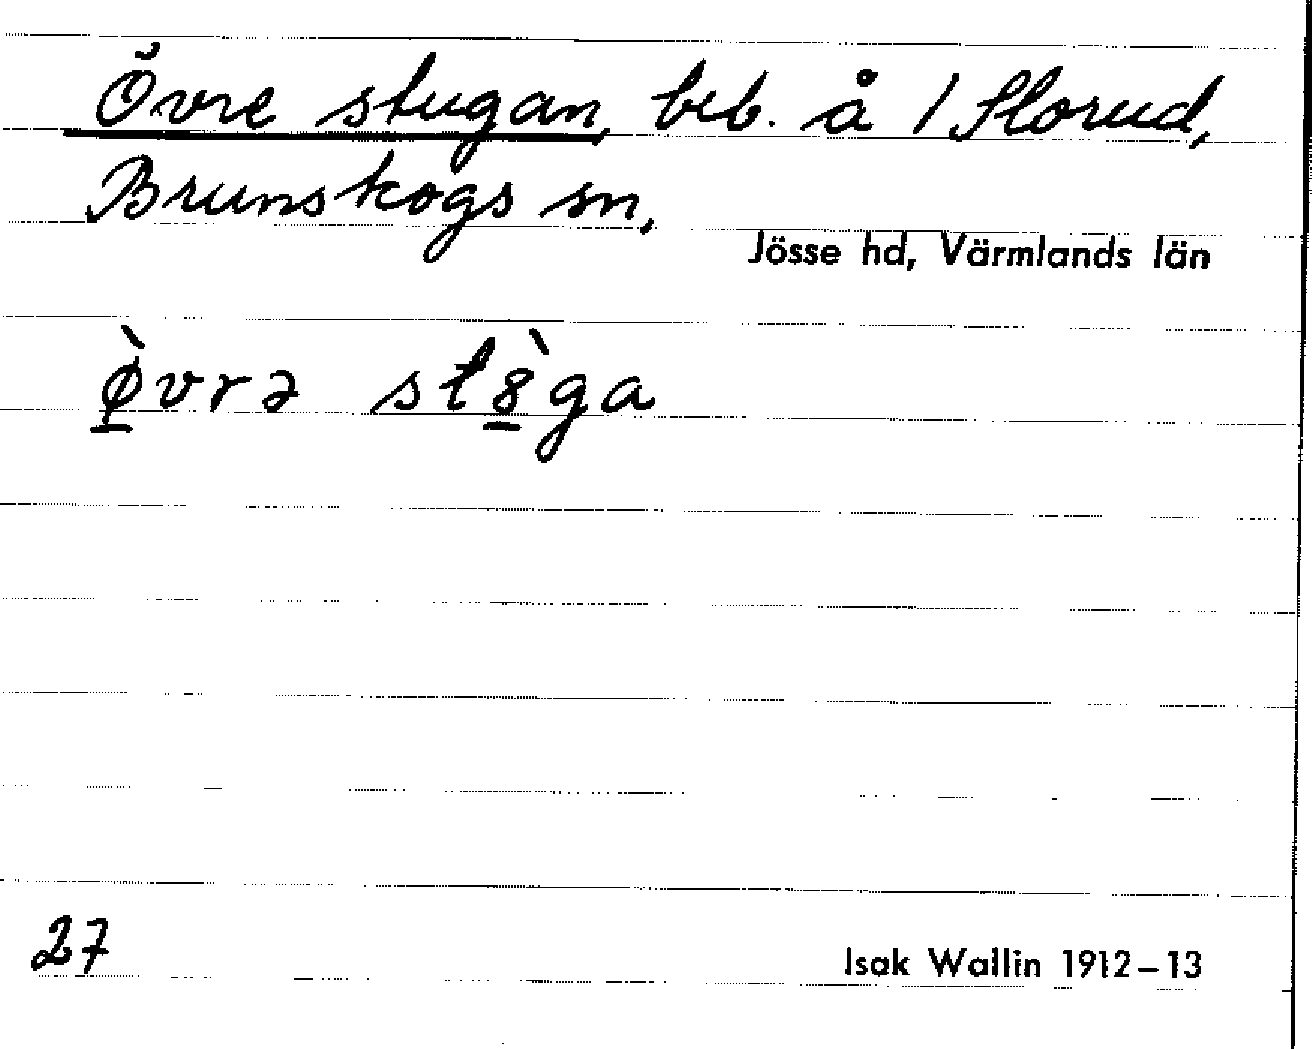 Övre stugan, beb. å 1 Slorud,
Brunskogs sn,
Jösse hd, Värmlands län
ø̱̀vrə st8̱̀ga
27
Isak Wallin 1912–13